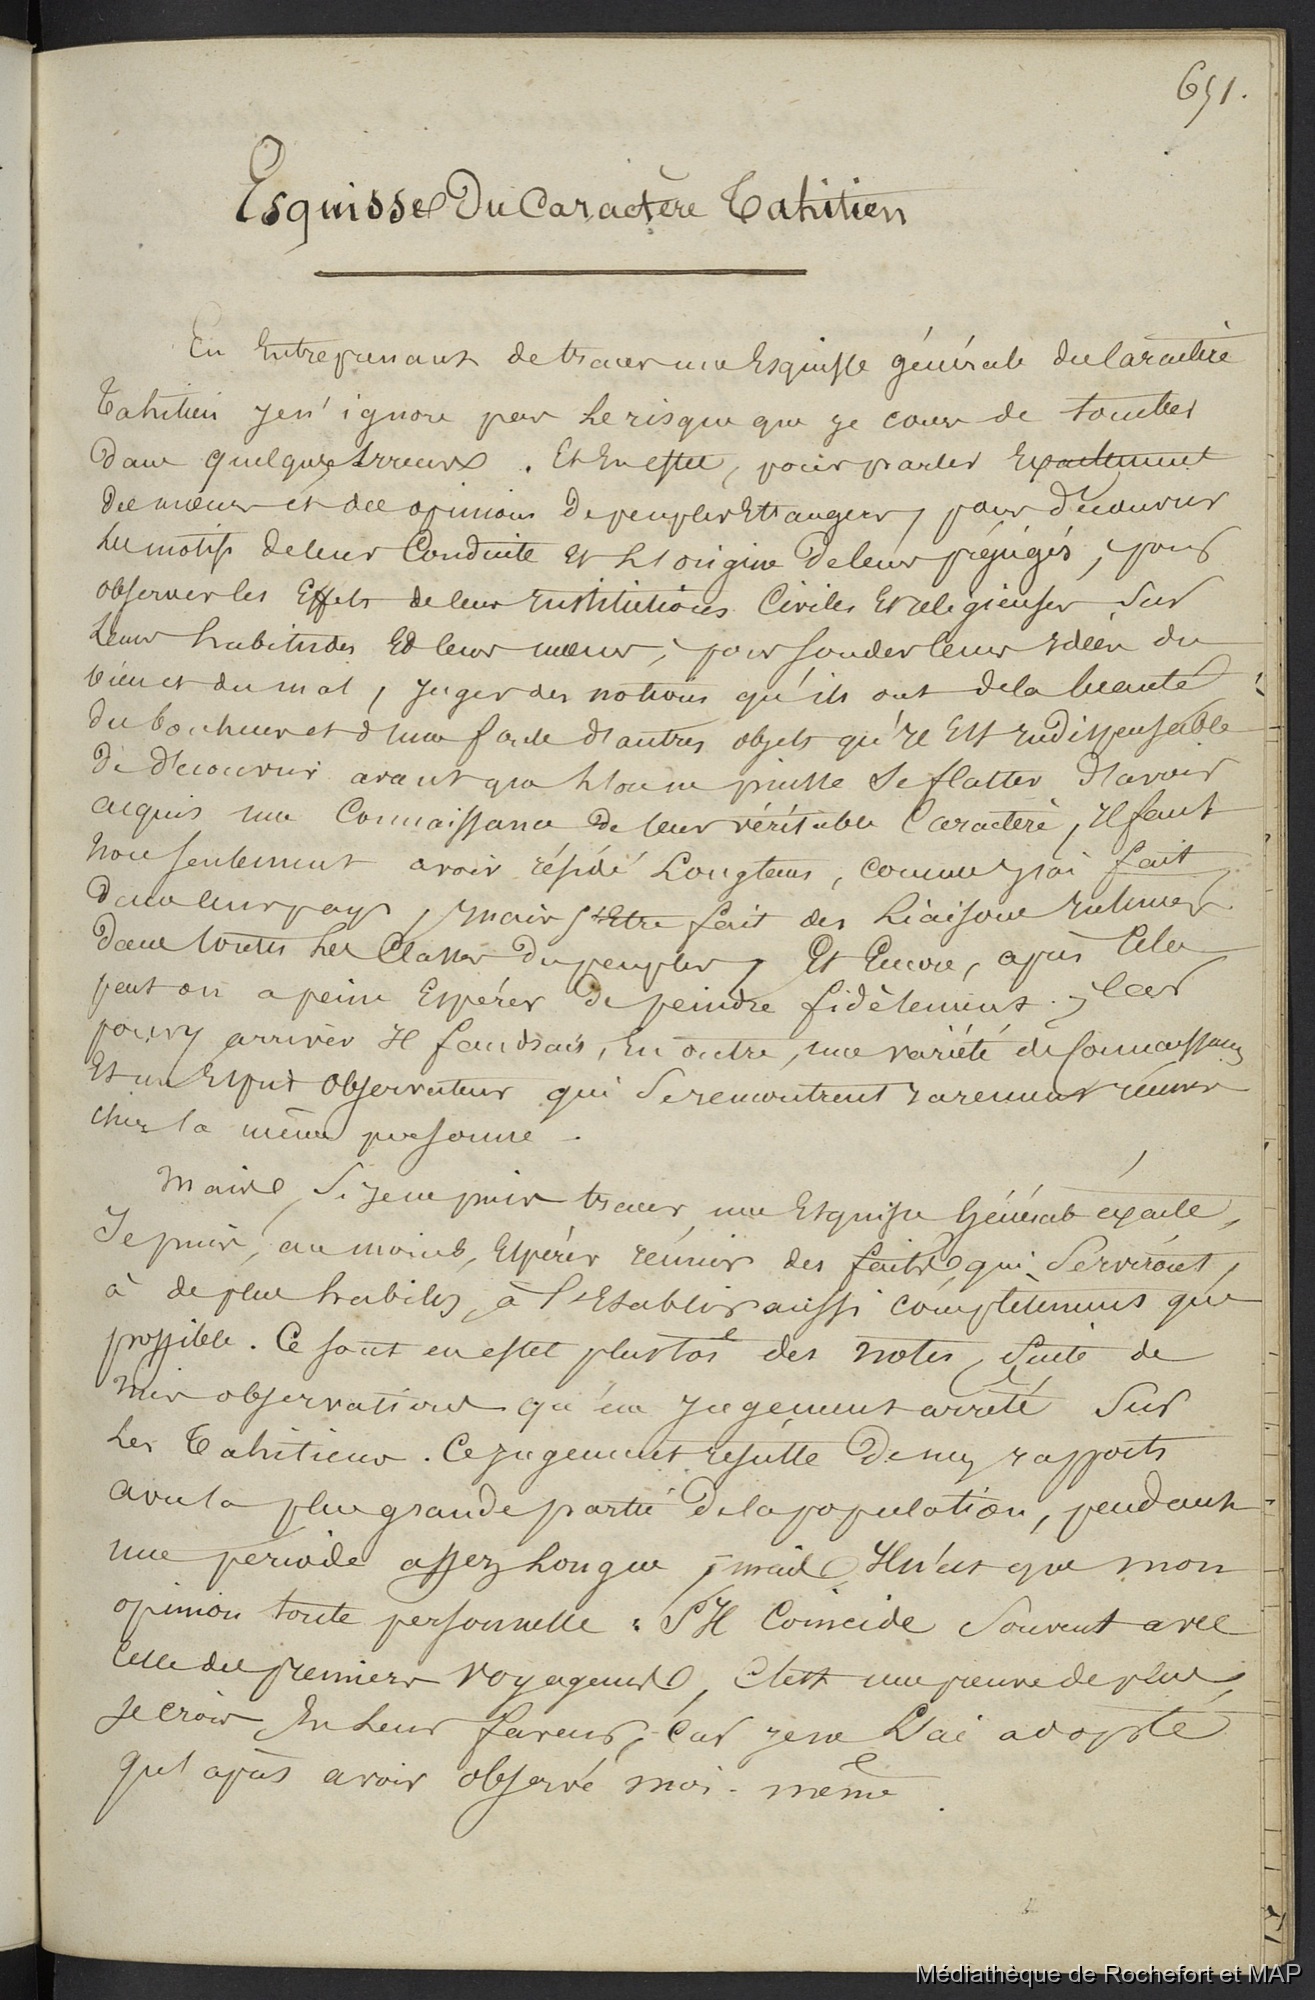 651.
Esquisse Du Caractère Tahitien
En Entreprenant de tracer une Esquisse générale du Caractère
Tahitien je n'ignore pas le risque que je cours de tomber
dans quelques Erreurs. Et En effet, pour parler Exactement
des mœurs et des opinions de peuples Etrangers, pour découvrir
les motifs de leur Conduite et l'origine de leurs préjugés, pour
observer les Effets de leurs Institutions Civiles et religieuses sur
leurs habitudes Et leurs mœurs, pour sonder leurs idées du
bien et du mal, juger des notions qu'ils ont de la beauté
du bonheur et d'une foule d'autres objets qu'il Est Indispensable
de découvrir avant que l'on ne puisse se flatter d'avoir
acquis une Connaissance de leur véritable Caractère, Il faut
non seulement avoir résidé Longtems, comme j'ai fait
dans leur pays, mais s'Etre fait des Liaisons Intimes
dans toutes les Classes du peuple, Et Encore, après Cela
peut on a peine Espérer de peindre fidèlement; Car
pour y arriver Il faudrait, En outre, une variété de Connaissances
Et un Esprit Observateur qui se rencontrent rarement réunis
chez la même personne.
Mais, si je ne puis tracer une Esquisse Générale éxacte,
Je puis, au moins, Espérer réunir des faits qui serviront,
à de plus habiles, à l'Etablir aussi complètement que
possible. Ce sont en effet plustôt des notes, suite de
mes observations qu'un jugement arrêté sur
les Tahitiens. Ce jugement résulte de mes rapports
avec la plus grande partie de la population, pendant
une période assez longue, mais Il n'est que mon
opinion toute personnelle: S'Il Coïncide souvent avec
Celle des premiers voyageurs, C'est une preuve de plus,
je crois, En leur faveur, Car je ne l'ai adopté
qu'après avoir observé moi-même.
Médiathèque de Rochefort et MAP